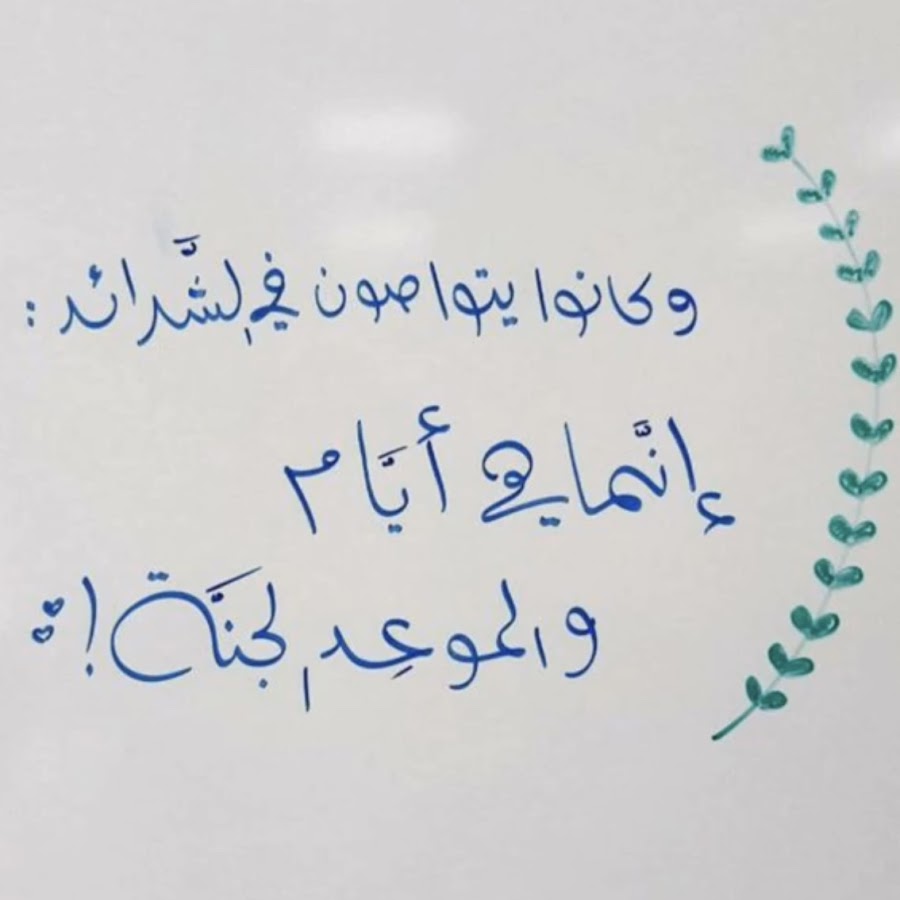 وكانوا يتواصون في الشَّدائد :
إنَّما هي أيَّام
والموعِد الجنَّة !